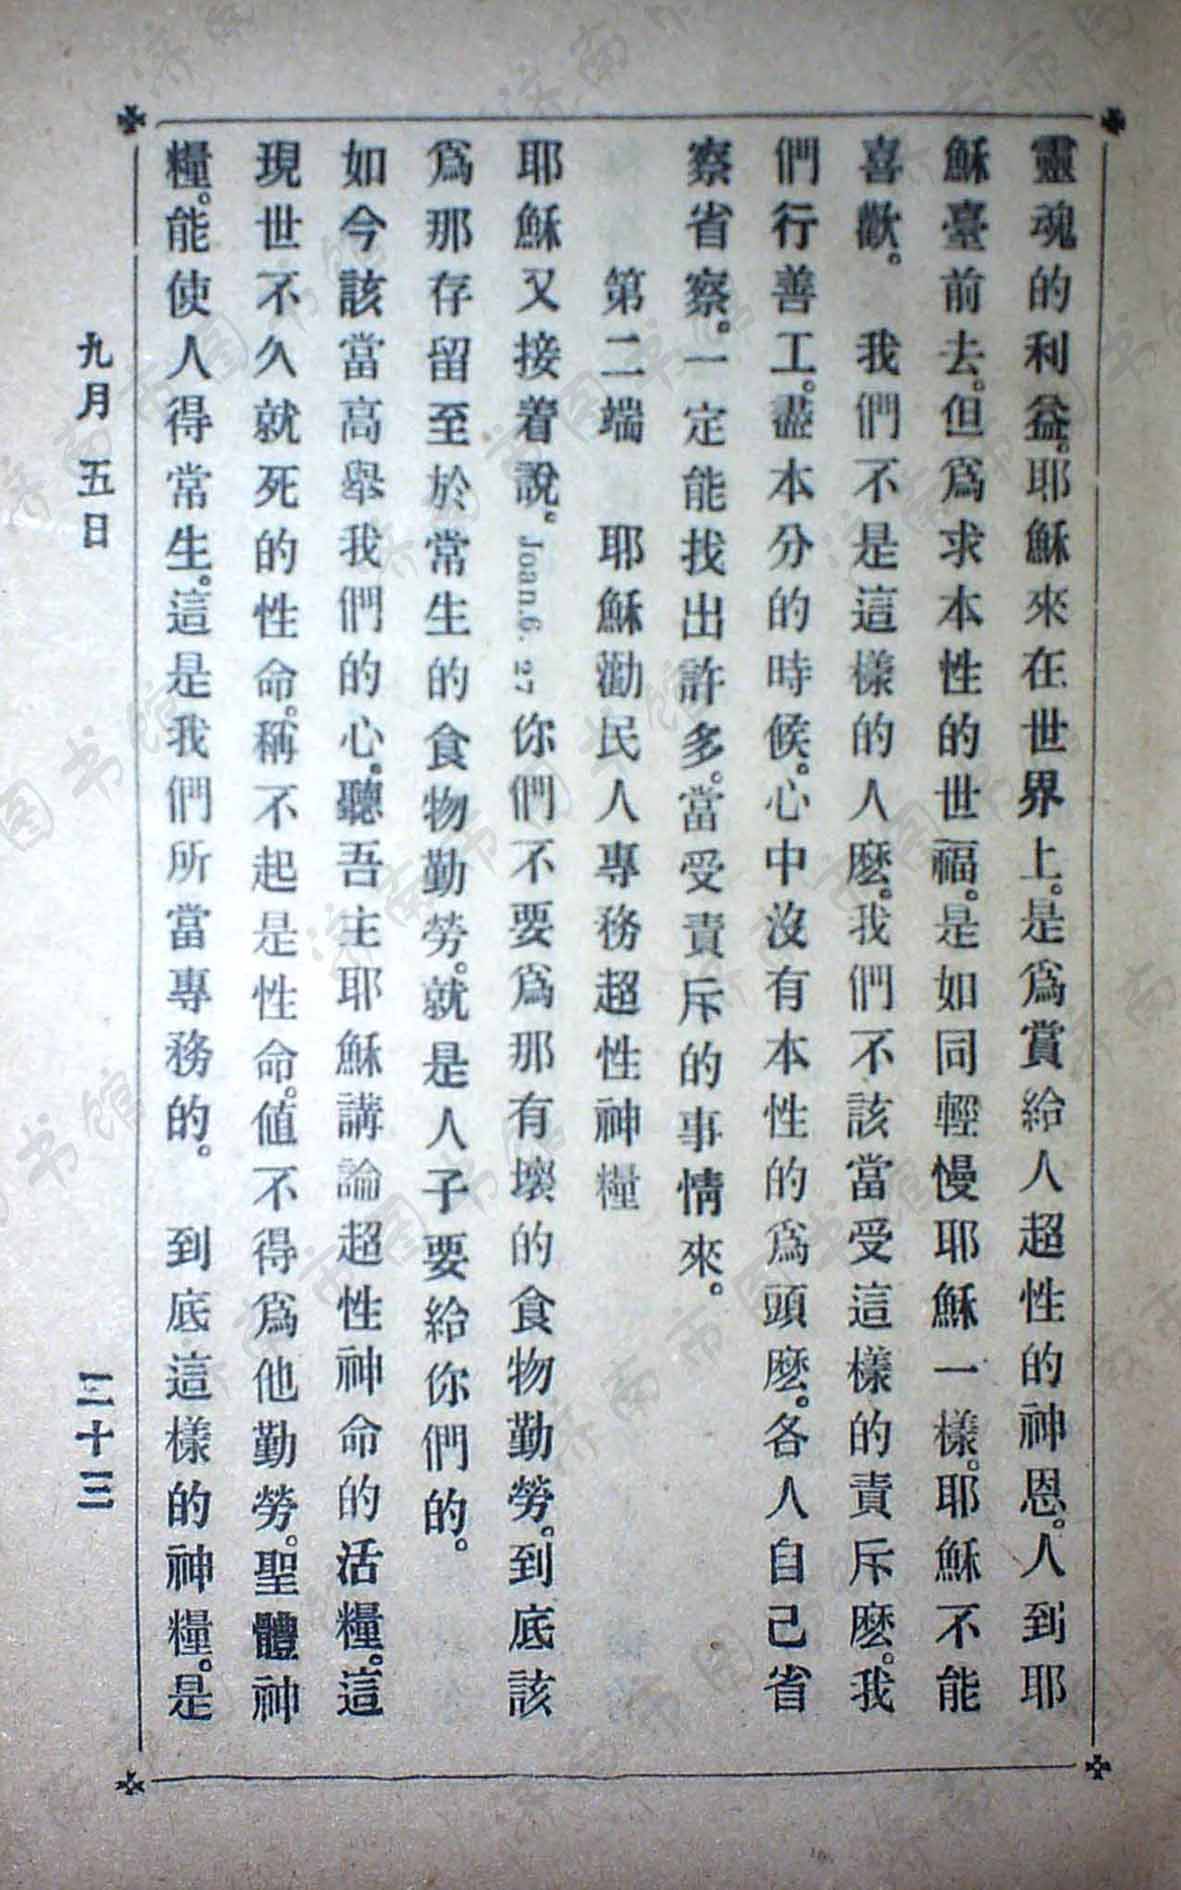 靈魂的利益。耶穌來在世界上。是爲賞給人超性的神恩。人到耶
穌臺前去。但爲求本性的世福。是如同輕慢耶穌一樣。耶穌不能
喜歡。　我們不是這樣的人麽。我們不該當受這樣的責斥麽。我
們行善工。盡本分的時候。心中沒有本性的爲頭麽。各人自己省
察省察。一定能找出許多。當受責斥的事情來。
第二端　耶穌勸民人專務超性神糧
耶穌又接着說。Joan.6. 27 你們不要爲那有壞的食物勤勞。到底該
爲那存留至於常生的食物勤勞。就是人子要給你們的。
如今該當高舉我們的心。聽吾主耶穌講論超性神命的活糧。這
現世不久就死的性命。稱不起是性命。值不得爲他勤勞。聖體神
糧。能使人得常生。這是我們所當專務的。　到底這樣的神糧。是
九月 五日　二十三
济南市图书馆